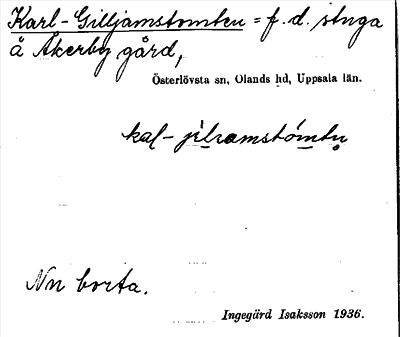 Karl-Gilljamstomten = f. d. stuga
å Åkerby gård,
Österlövsta sn, Olands hd, Uppsala län.
Nn borta.
Ingegärd Isaksson 1936.